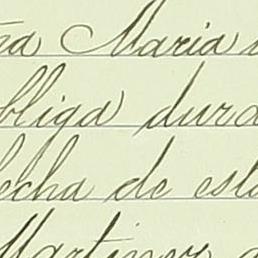 ña Maria
bliga dura
fecha de esta
Martinez